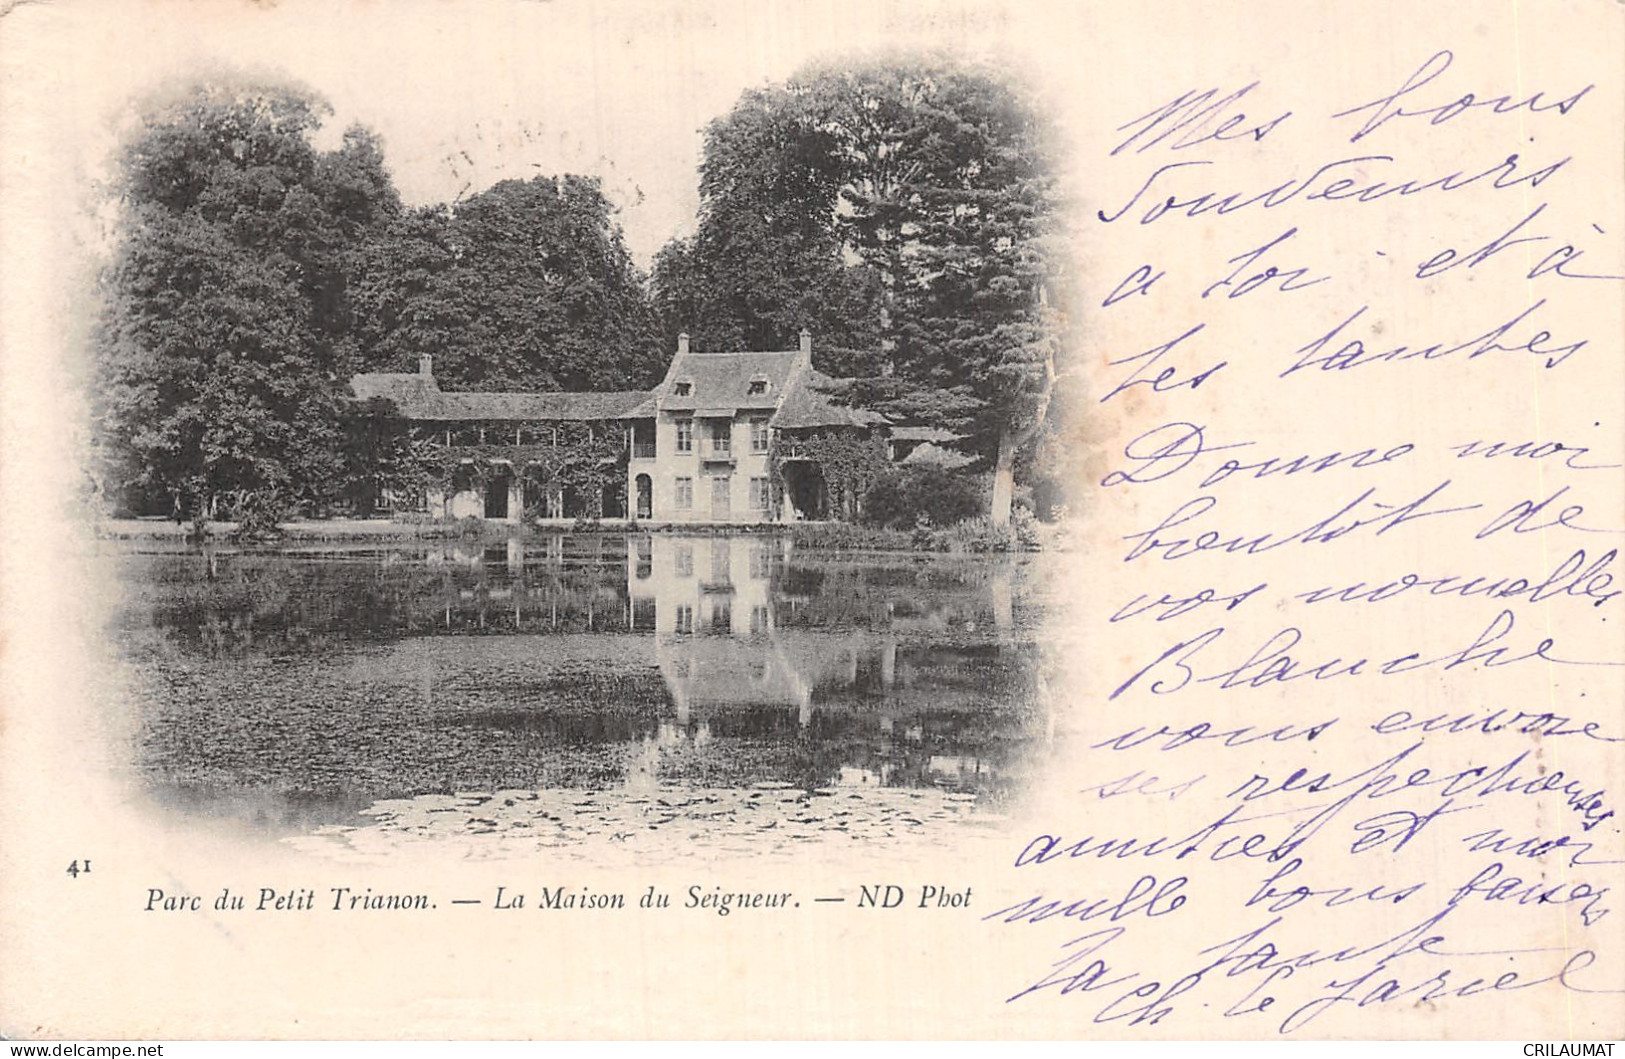 Mes bons
souvenirs
a toi et à
tes tantes
Donne moi
bientôt de
vos nouvelles
Blanche
vous envoie
ses respectueuses
amitiés et moi
mille bons baisers
Ta tante
Ch. le
41
Parc du Petit Trianon. — La Maison du Seigneur. — ND Phot
delcampe.net
CRILAUMAT